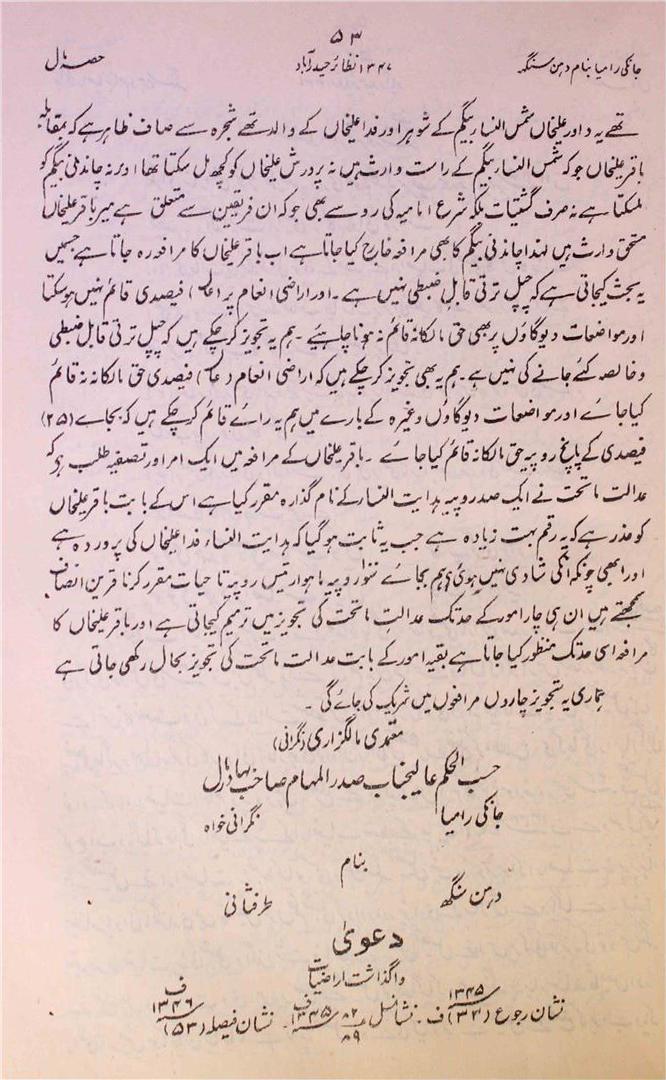 ۵۳
جانکی رامیا بنام دہن سنگہ ۱۳۴۷ نظائر حیدرآباد حصہ مال
تھے یہ داور علیخاں شمس النسا ربیگم کے شوہر اور فدا علیخاں کے والد تھے شجرہ سے صاف ظاہر ہے کہ بمقابلہ
باقر علیخاں جو کہ شمس النسا ربیگم کے راست وارث ہیں نہ پرورش علیخاں کو کچھ مل سکتا تھا اور نہ چاندنی بیگم کو
ملسکتا ہے نہ صرف گشتیات بلکہ شرع امامیہ کی رو سے بھی جو کہ ان فریقین سے متعلق ہے میر باقر علیخاں
مستحق وارث ہیں لہذا چاندنی بیگم کا بھی مرافعہ خارج کیا جاتا ہے اب باقر علیخاں کا مرافعہ رہ جاتا ہے جسمیں
یہ بحث کیجاتی ہے کہ چیل ترتی قابل ضبطی نہیں ہے ۔ اور اراضی انعام پر فیصدی قائم نہیں ہو سکتا
اور مواضعات دیوگاؤں پر بھی حق مالکانہ قائم نہ ہونا چاہئیے ۔ ہم یہ تجویز کر چکے ہیں کہ چیل ترتی قابل ضبطی
و خالصہ کئے جانے کی نہیں ہے ۔ ہم یہ بھی تجویز کر چکے ہیں کہ اراضی انعام فیصدی حق مالکانہ نہ قائم
کیا جاے اور مواضعات دیوگاؤں وغیرہ کے بارے میں ہم یہ راے قائم کر چکے ہیں کہ بجاے (۲۵)
فیصدی کے پانچ روپیہ حق مالکانہ قائم کیا جاے ۔ باقر علیخاں کے مرافعہ میں ایک امر اور تصفیہ طلب ہے کہ
عدالت ماتحت نے ایک صد روپیہ ہدایت النسا رکے نام گذارہ مقرر کیا ہے اس کے بابت باقر علیخاں
کو عذر ہے کہ یہ رقم بہت زیادہ ہے جب یہ ثابت ہو گیا کہ ہدایت النساء فدا علیخاں کی پروردہ ہے
اور ابھی چونکہ انکی شادی نہیں ہوئی ہم بجائے سو روپیہ ماہوار تیس روپیہ تا حیات مقرر کرنا قرین انصاف
سمجھتے ہیں ان ہی چار امور کے حد تک عدالت ماتحت کی تجویز میں ترمیم کیجاتی ہے اور باقر علیخاں کا
مرافعہ اسی حد تک منظور کیا جاتا ہے بقیہ امور کے بابت عدالت ماتحت کی تجویز بحال رکھی جاتی ہے
ہماری یہ تجویز چاروں مرافعوں میں شریک کی جائے گی ۔
معتمدی مالگزاری (نگرانی)
حسب الحکم عالیجناب صدر المہام صاحب بہادر مال
جانکی رامیا نگرانی خواہ
بنام
دہن سنگھ طرفثانی
دعویٰ
واگذاشت اراضیات
نشان رجوع (۳۴) ۱۳۴۵ ف ۔ نشانسل ۸۲/۸۹ ۱۳۴۵ ف ۔ نشان فیصلہ (۵۳) ۱۳۴۶ ف